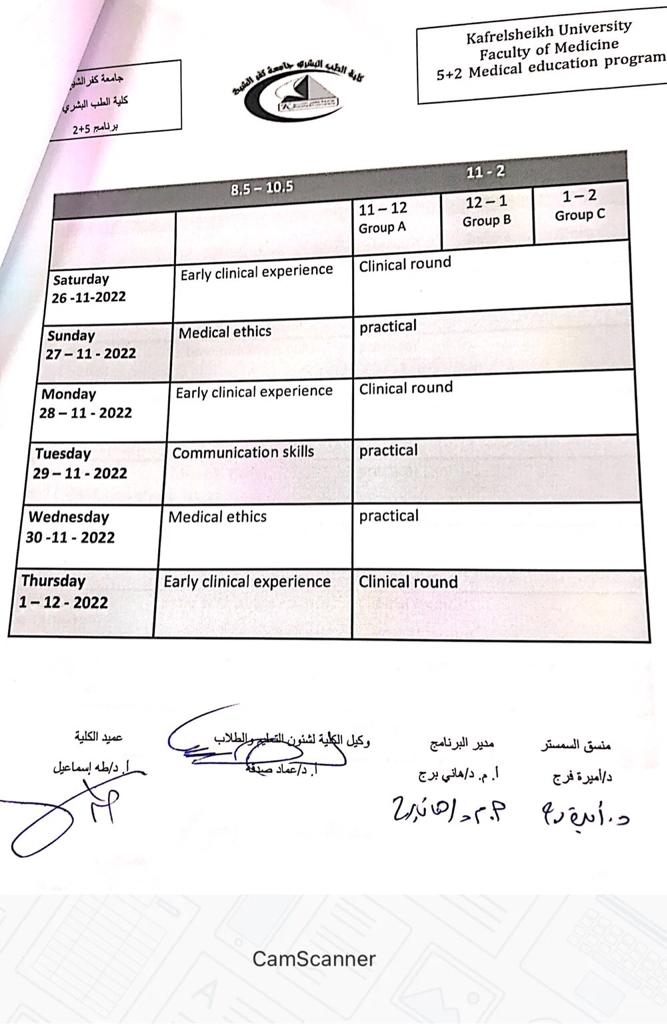 Kafrelsheikh University
Faculty of Medicine
5+2 Medical education program
جامعة كفر الشيخ
كلية الطب البشري
برنامج 5+2
كلية الطب البشري جامعة كفر الشيخ
8,5 – 10,5
11 - 2
11 – 12
Group A
12 – 1
Group B
1 – 2
Group C
Saturday
26 -11-2022
Early clinical experience
Clinical round
Sunday
27 – 11 - 2022
Medical ethics
practical
Monday
28 – 11 - 2022
Early clinical experience
Clinical round
Tuesday
29 – 11 - 2022
Communication skills
practical
Wednesday
30 -11 - 2022
Medical ethics
practical
Thursday
1 – 12 - 2022
Early clinical experience
Clinical round
منسق السمستر
مدير البرنامج
وكيل الكلية لشئون التعليم والطلاب
عميد الكلية
د/أميرة فرج
أ. م. د/هاني برج
أ. د/عماد صدقة
أ. د/طه إسماعيل
CamScanner